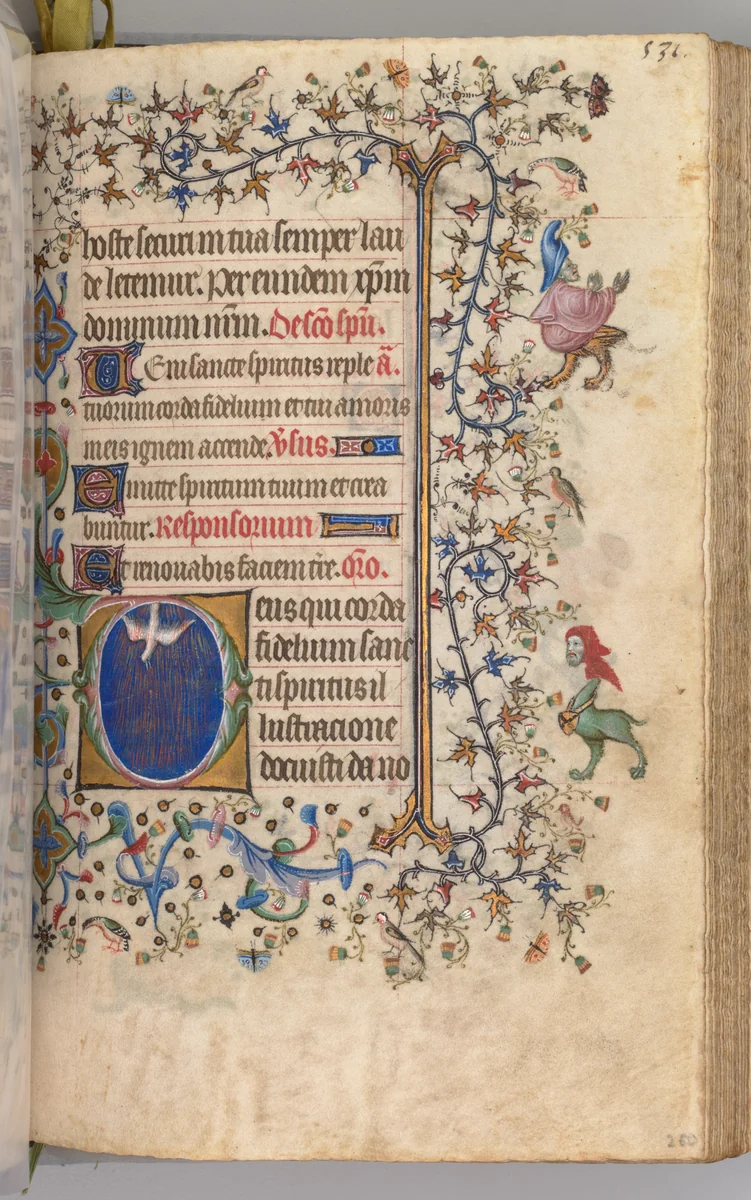 531.
hoste securi in tua semper lau
de letemur. Per eundem xp̄m
dominum nr̄m. De sc̄o spū.
Veni sancte spiritus reple a̅.
tuorum corda fidelium et tui amoris
in eis ignem accende. V̄sus.
Emitte spiritum tuum et crea
buntur. Responsorium
Et renouabis faciem tr̄e. Or̄o.
Deus qui corda
fidelium sanc
ti spiritus il
lustracione
docuisti da no
260